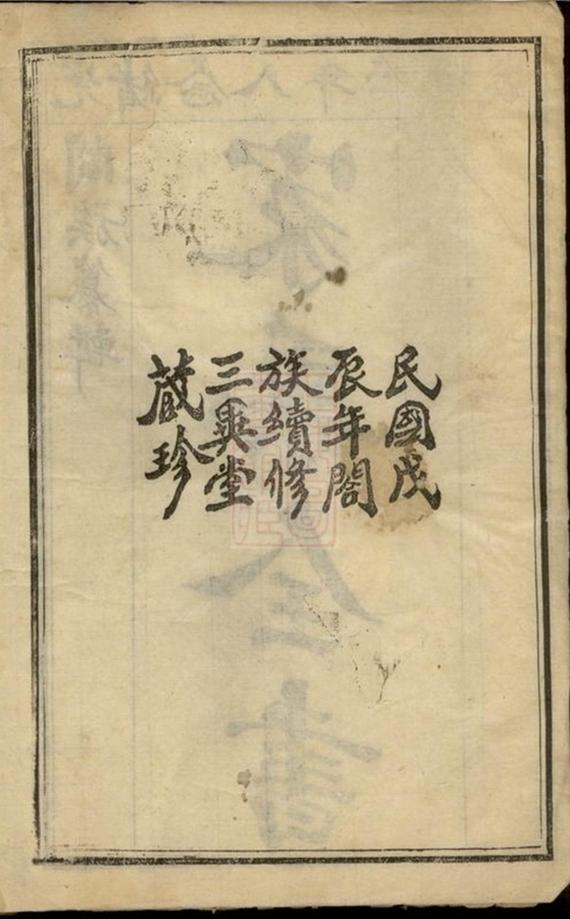 民國戊
辰年閤
族續修
三異堂
藏珍